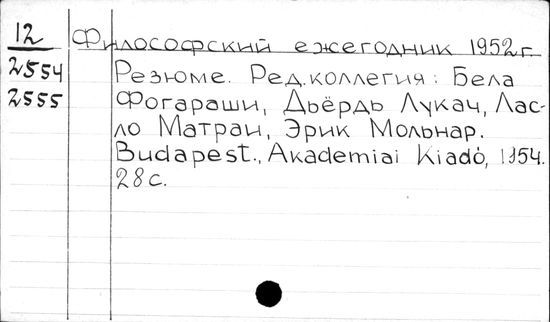 12 Философский ежегодник 1952 г.
2554 Резюме. Ред.коллегия: Бела
2555 Фогараши, Дьёрдь Лукач, Лас-
ло Матраи, Эрик Мольнар.
Budapest., Akademiai Kiadó, 1954.
28 с.